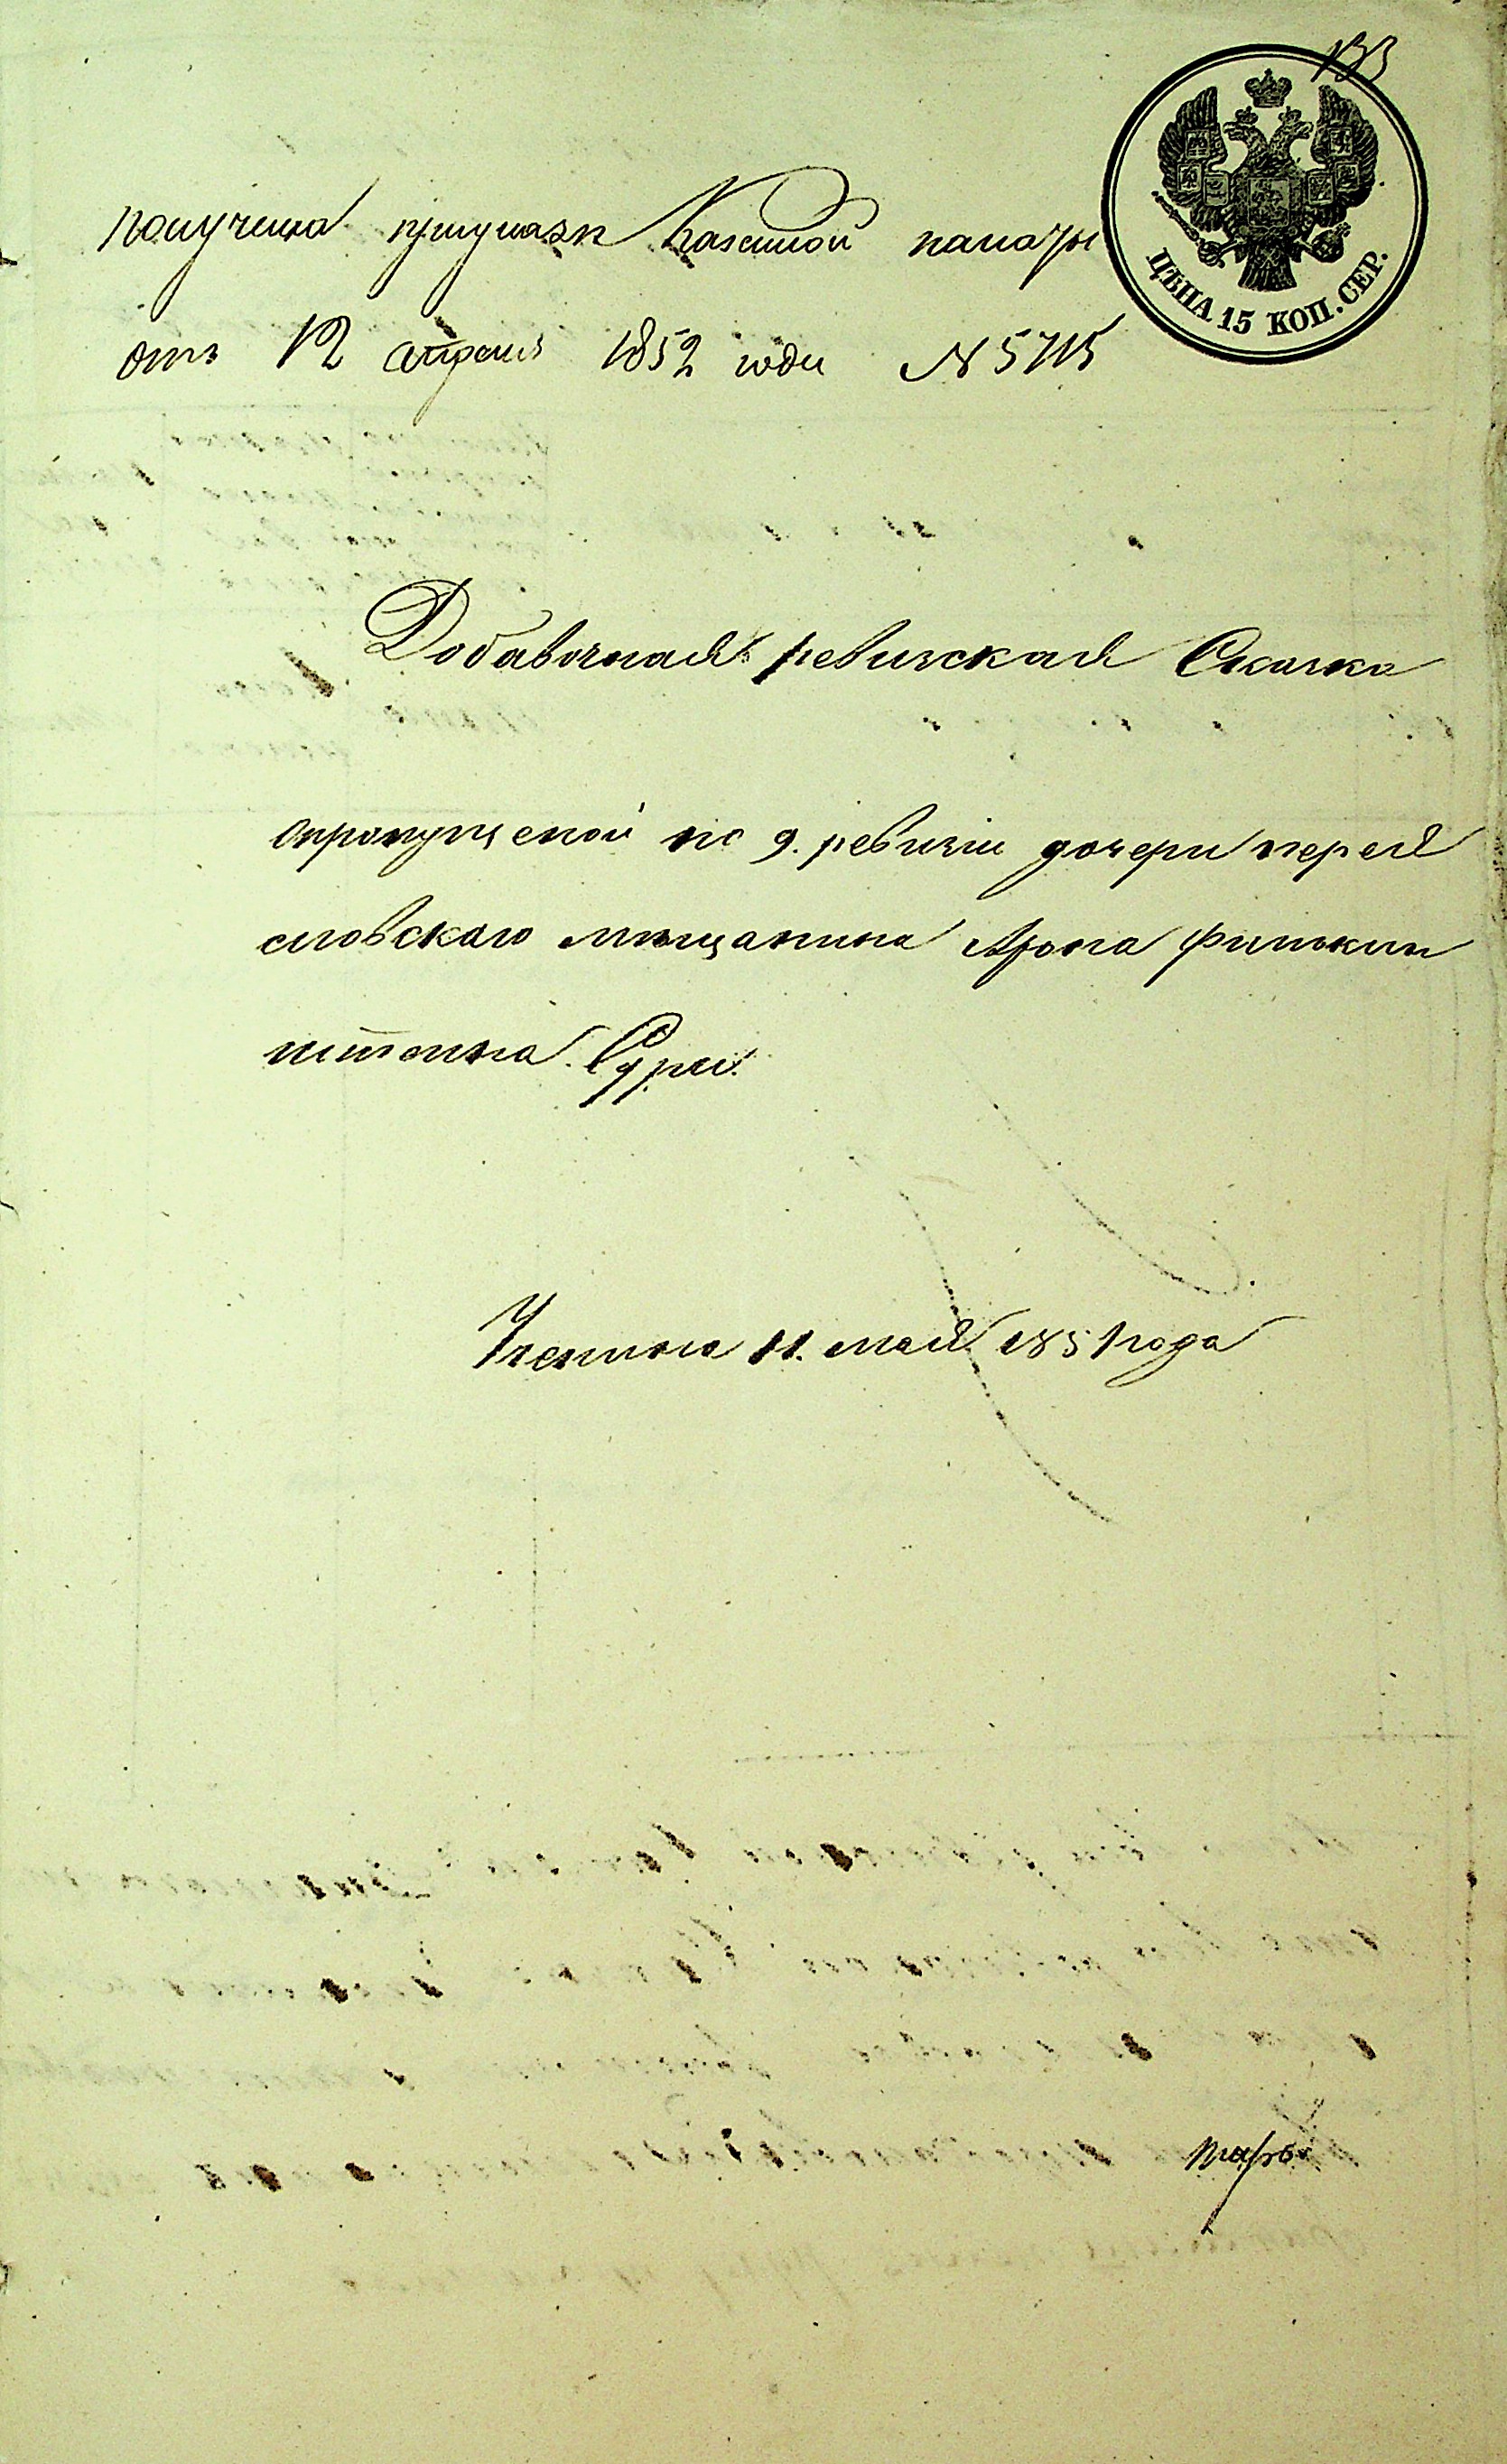 133
ЦѢНА 15 КОП. СЕР.
получена при указѣ Казенной палаты
отъ 12 апреля 1852 года N 5715
Добавочная ревизская Сказка
опропущеной по 9. ревизiи дочери перея
словскаго мѣщанина Арона Финкин
штеина. Сури.
11. мая 1851 года